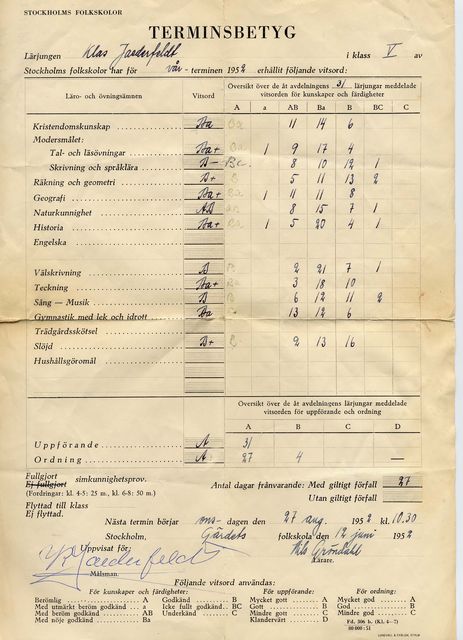 STOCKHOLMS FOLKSKOLOR
TERMINSBETYG
Lärjungen Klas Jaederfeldt i klass V av
Stockholms folkskolor har för vår- terminen 1952 erhållit följande vitsord:
Läro- och övningsämnen Vitsord Översikt över de åt avdelningens 31 lärjungar meddelade vitsorden för kunskaper och färdigheter
A a AB Ba B BC C
Kristendomskunskap Ba 11 14 6
Modersmålet:
Tal- och läsövningar Ba+ 1 9 17 4
Skrivning och språklära B- Bc. 8 10 12 1
Räkning och geometri B+ 5 11 13 2
Geografi Ba+ 1 11 11 8
Naturkunnighet AB 8 15 7 1
Historia Ba+ 1 5 20 4 1
Engelska
Välskrivning B 2 21 7 1
Teckning Ba+ 3 18 10
Sång — Musik B 6 12 11 2
Gymnastik med lek och idrott Ba 13 12 6
Trädgårdsskötsel
Slöjd B+ 2 13 16
Hushållsgöromål
Översikt över de åt avdelningens lärjungar meddelade vitsorden för uppförande och ordning
A B C D
Uppförande A 31
Ordning A 27 4 —
Fullgjort
Ej fullgjort simkunnighetsprov.
(Fordringar: kl. 4-5: 25 m., kl. 6-8: 50 m.)
Antal dagar frånvarande: Med giltigt förfall 27
Utan giltigt förfall
Flyttad till klass
Ej flyttad.
Nästa termin börjar ons- dagen den 27 aug. 1952 kl. 10.30
Stockholm, Gärdets folkskola den 12 juni 1952
Uppvisat för: Nils Gröndahl
K Jaederfeldt Lärare.
Målsman.
Följande vitsord användas:
För kunskaper och färdigheter: För uppförande: För ordning:
Berömlig A Godkänd B Mycket gott A Mycket god A
Med utmärkt beröm godkänd a Icke fullt godkänd BC Gott B God B
Med beröm godkänd AB Underkänd C Mindre gott C Mindre god C
Med nöje godkänd Ba Klandervärt D Fd. 506 b. (Kl. 4-7)
80 000 : 51